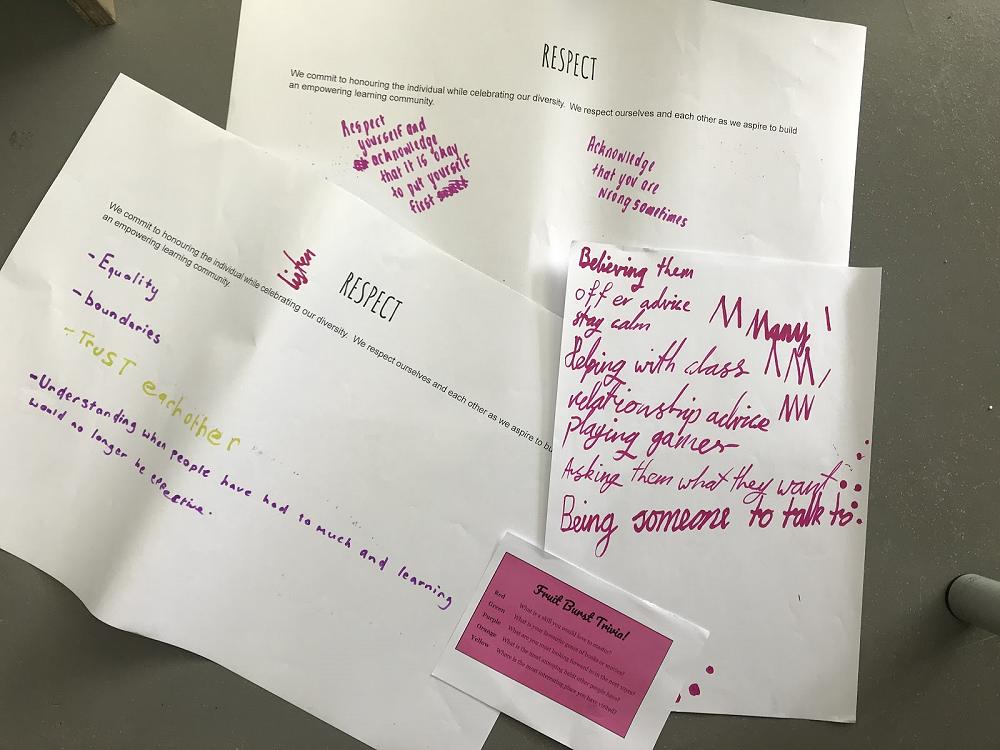 RESPECT
We commit to honouring the individual while celebrating our diversity. We respect ourselves and each other as we aspire to build
an empowering learning community.
Respect
yourself and
acknowledge
that it is okay
to put yourself
first
Acknowledge
that you are
wrong sometimes
Listen
RESPECT
We commit to honouring the individual while celebrating our diversity. We respect ourselves and each other as we aspire to bu
an empowering learning community.
- Equality
- boundaries
- Trust each other
- Understanding when people have had to much and learning
would no longer be effective.
Believing them
offer advice
stay calm
Many
Helping with class
relationship advice
playing games
Asking them what they want
Being someone to talk to.
Fruit Burst Trivia!
Red What is a skill you would love to master?
Green What is your favourite genre of books or movies?
Purple What are you most looking forward to in the next year?
Orange What is the most annoying habit other people have?
Yellow Where is the most interesting place you have visited?